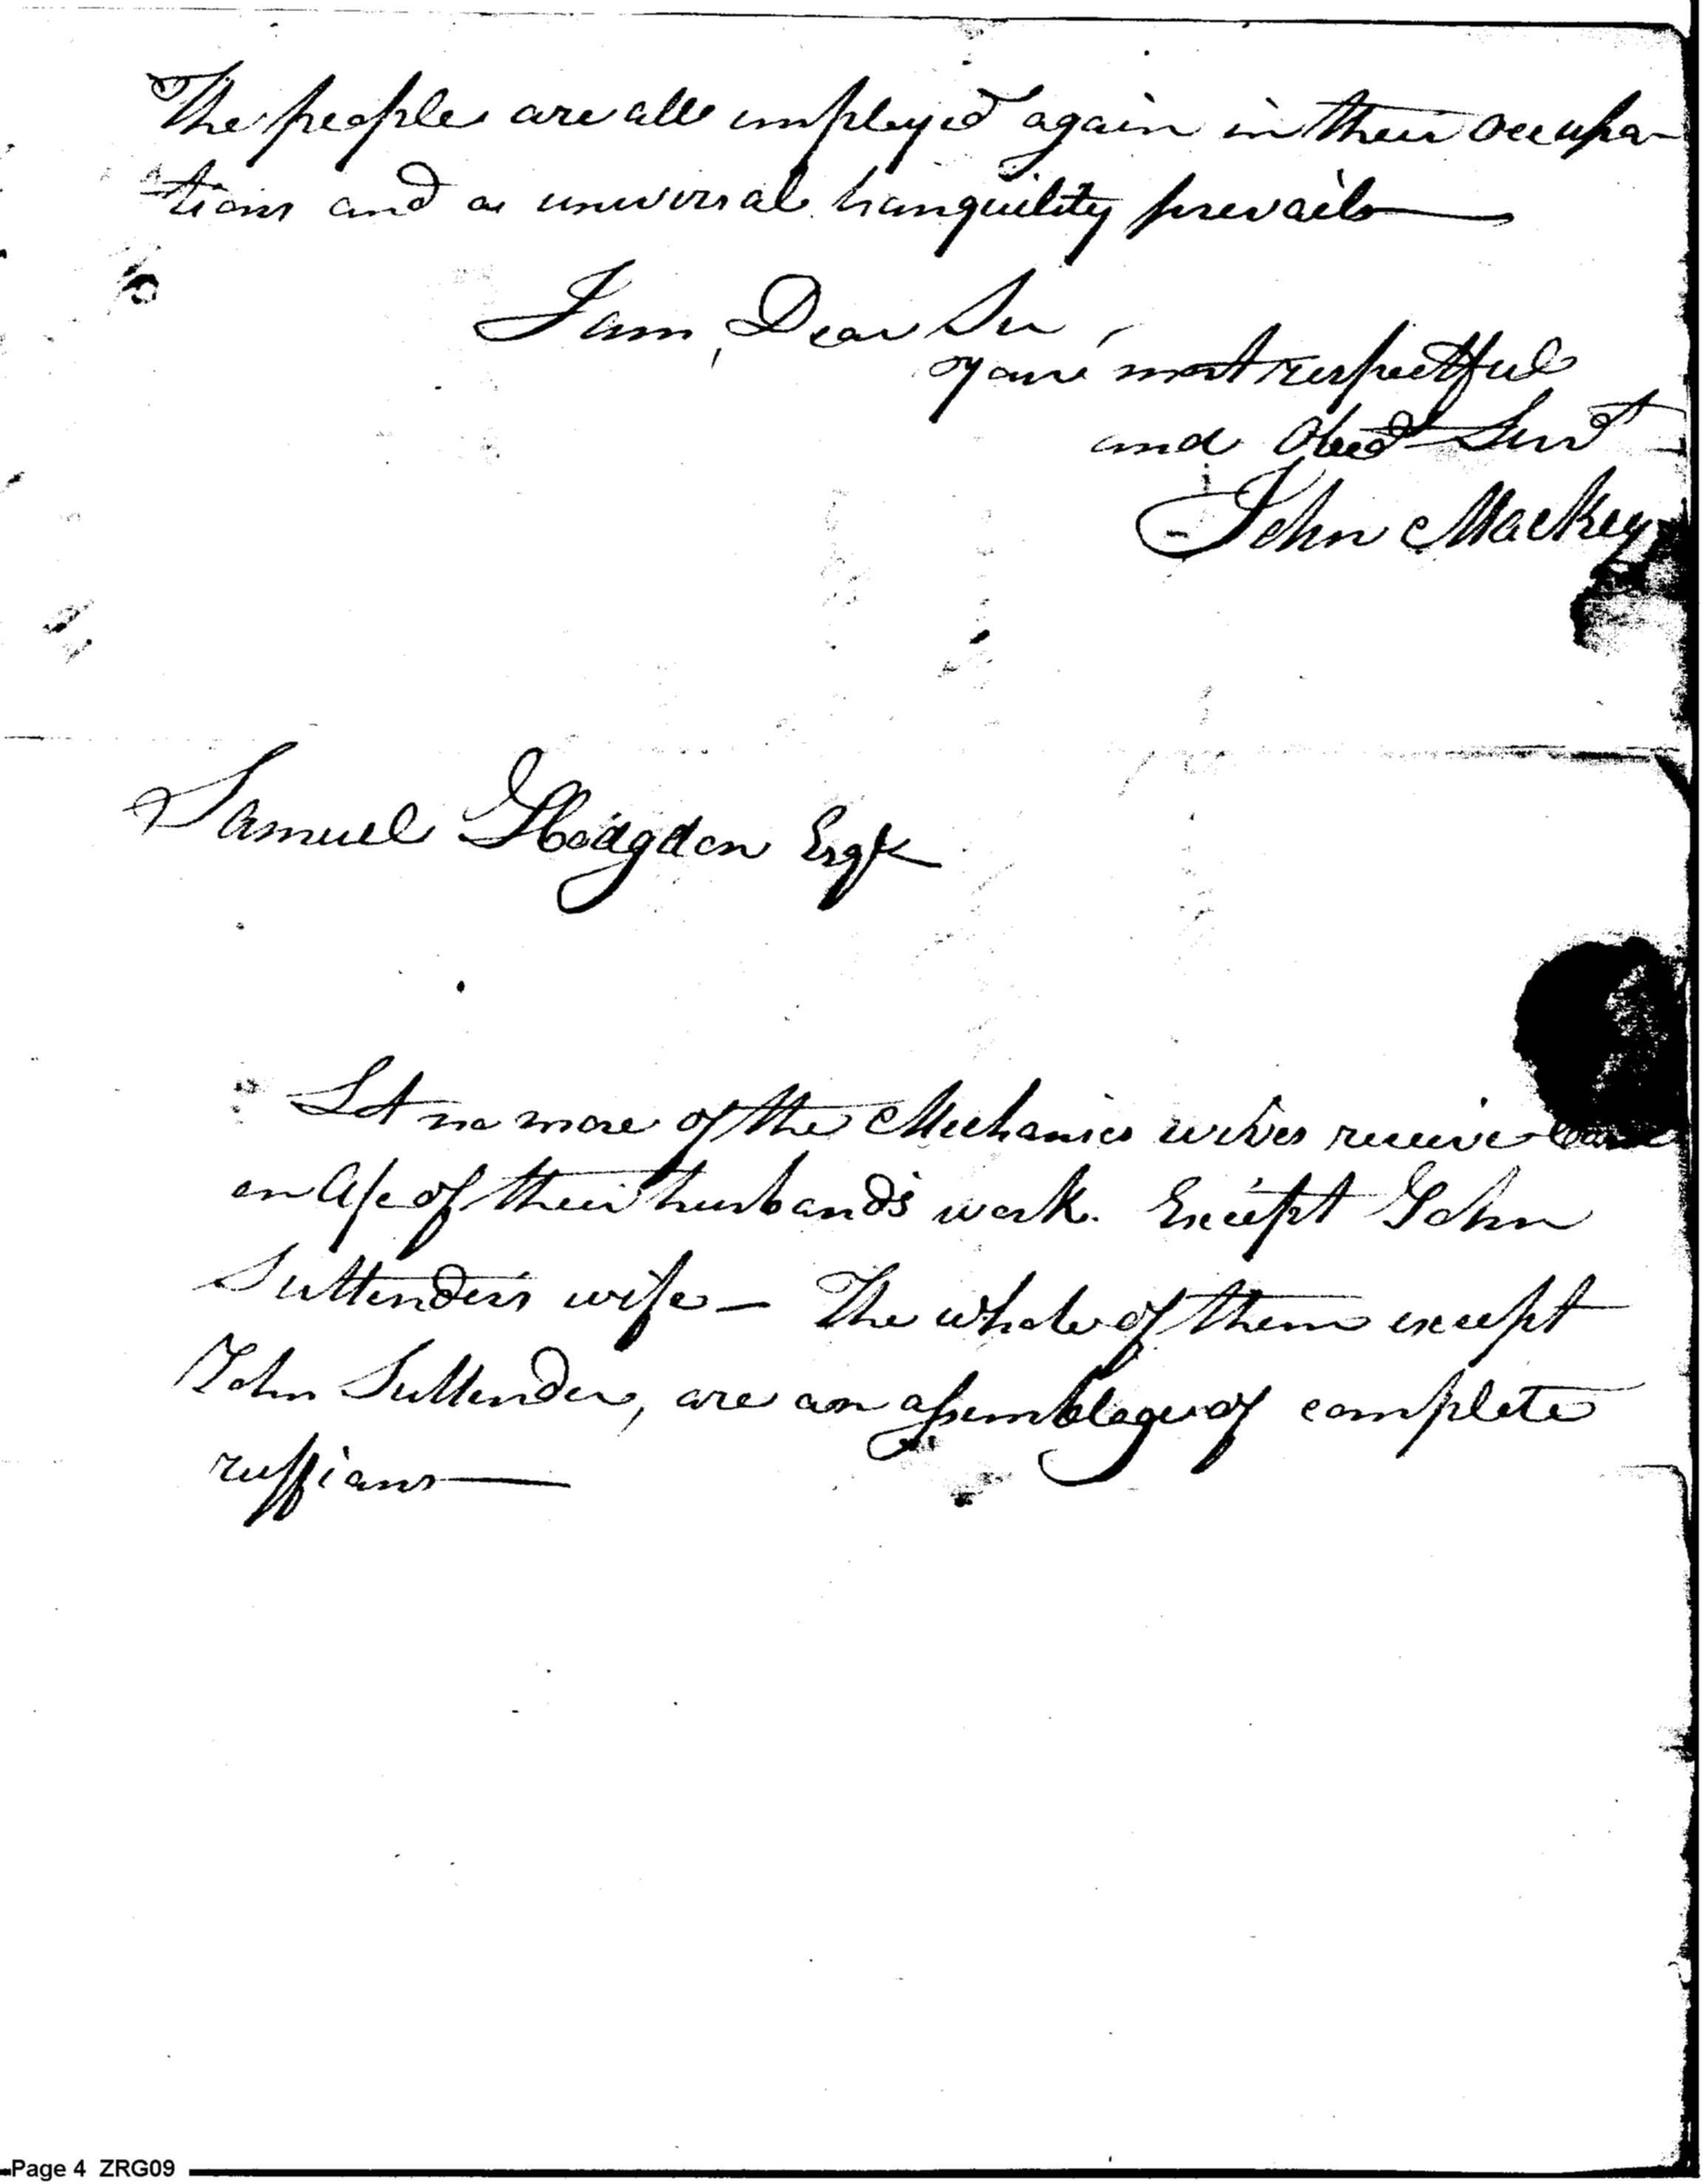 The people are all employed again in their occupa-
tions and a universal tranquility prevails
I am, Dear Sir,
your most respectful
and Obed Servt
John Mackey
Samuel Hodgdon Esqr
Let no more of the Mechanics wives receive
on A/c of their husband's work. Except John
Suttender's wife — The whole of them except
John Suttender, are an assemblage of complete
ruffians
Page 4 ZRG09